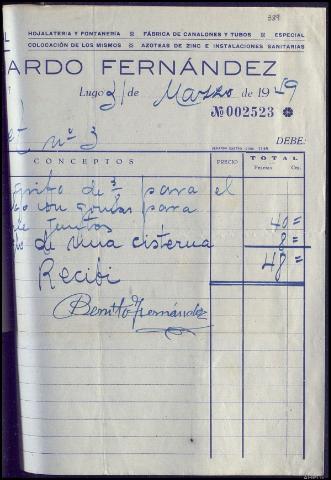 389
HOJALATERIA Y FONTANERÍA ✳ FÁBRICA DE CANALONES Y TUBOS ✳ ESPECIAL
COLOCACIÓN DE LOS MISMOS ✳ AZOTEAS DE ZINC E INSTALACIONES SANITARIAS
ARDO FERNÁNDEZ
Lugo 31 de Marzo de 1949
№ 002523
nº 3
DEBE:
CONCEPTOS PRECIO TOTAL
Pesetas Cts.
de 3/4 para el
con gomas para
juntas 40 =
de una cisterna 8 =
48 =
Recibi
Benito Fernández